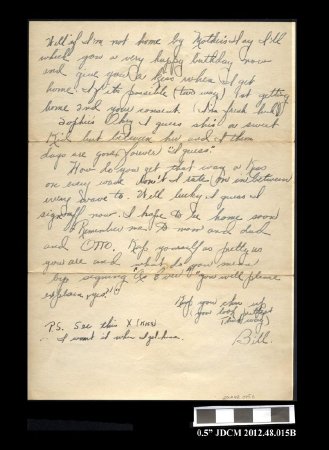 Well if I'm not home by Mother's Day I'll
wish you a very happy birthday now
and give you a kiss when I get
home. If it's possible (two ways) Not getting
home and your consent. (I'm fresh but)
Sophie's Okey I guess she's a sweet
Kid but between her and I them
days are gone forever "I guess"
How do you get that way a kiss
on every wave don't I rate one in between
every wave to. Well lucky I guess I
sign off now. I hope to be home soon
Remember me to mom and dad
and Otto. Keep yourself as pretty as
you are and what do you mean
by signing "As Ever" you will please
explain, yes?
Keep your chin up
(you look prettier
that way)
Bill.
P.S. See this X (kiss)
I want it when I get home.
2012.48.015B
0.5" JDCM 2012.48.015B